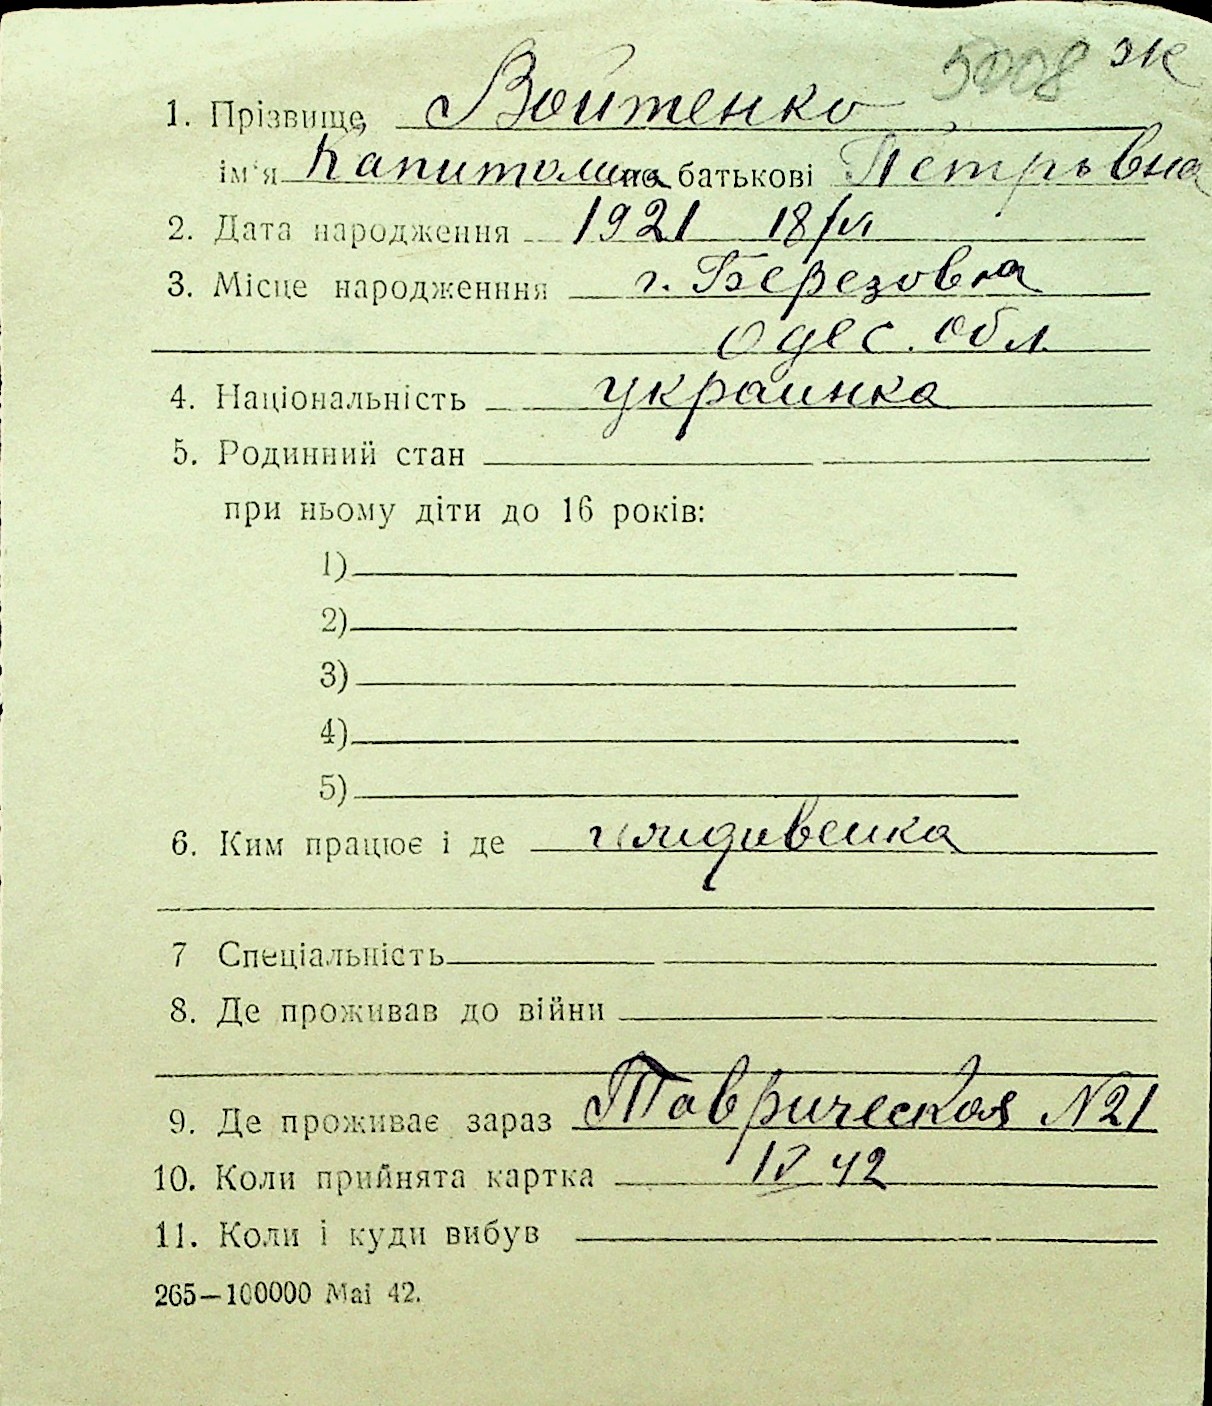 5008 эк
1. Прізвище, Войтенко
ім'я Капитолина по батькові Петрвна
2. Дата народження 1921 18/VI
3. Місце народженння г. Березовка
Одес. обл.
4. Національність украинка
5. Родинний стан
при ньому діти до 16 років:
1)
2)
3)
4)
5)
6. Ким працює і де
7 Спеціальність
8. Де проживав до війни
9. Де проживає зараз Таврическая №21
10. Коли прийнята картка IV 42
11. Коли і куди вибув
265—100000 Mai 42.